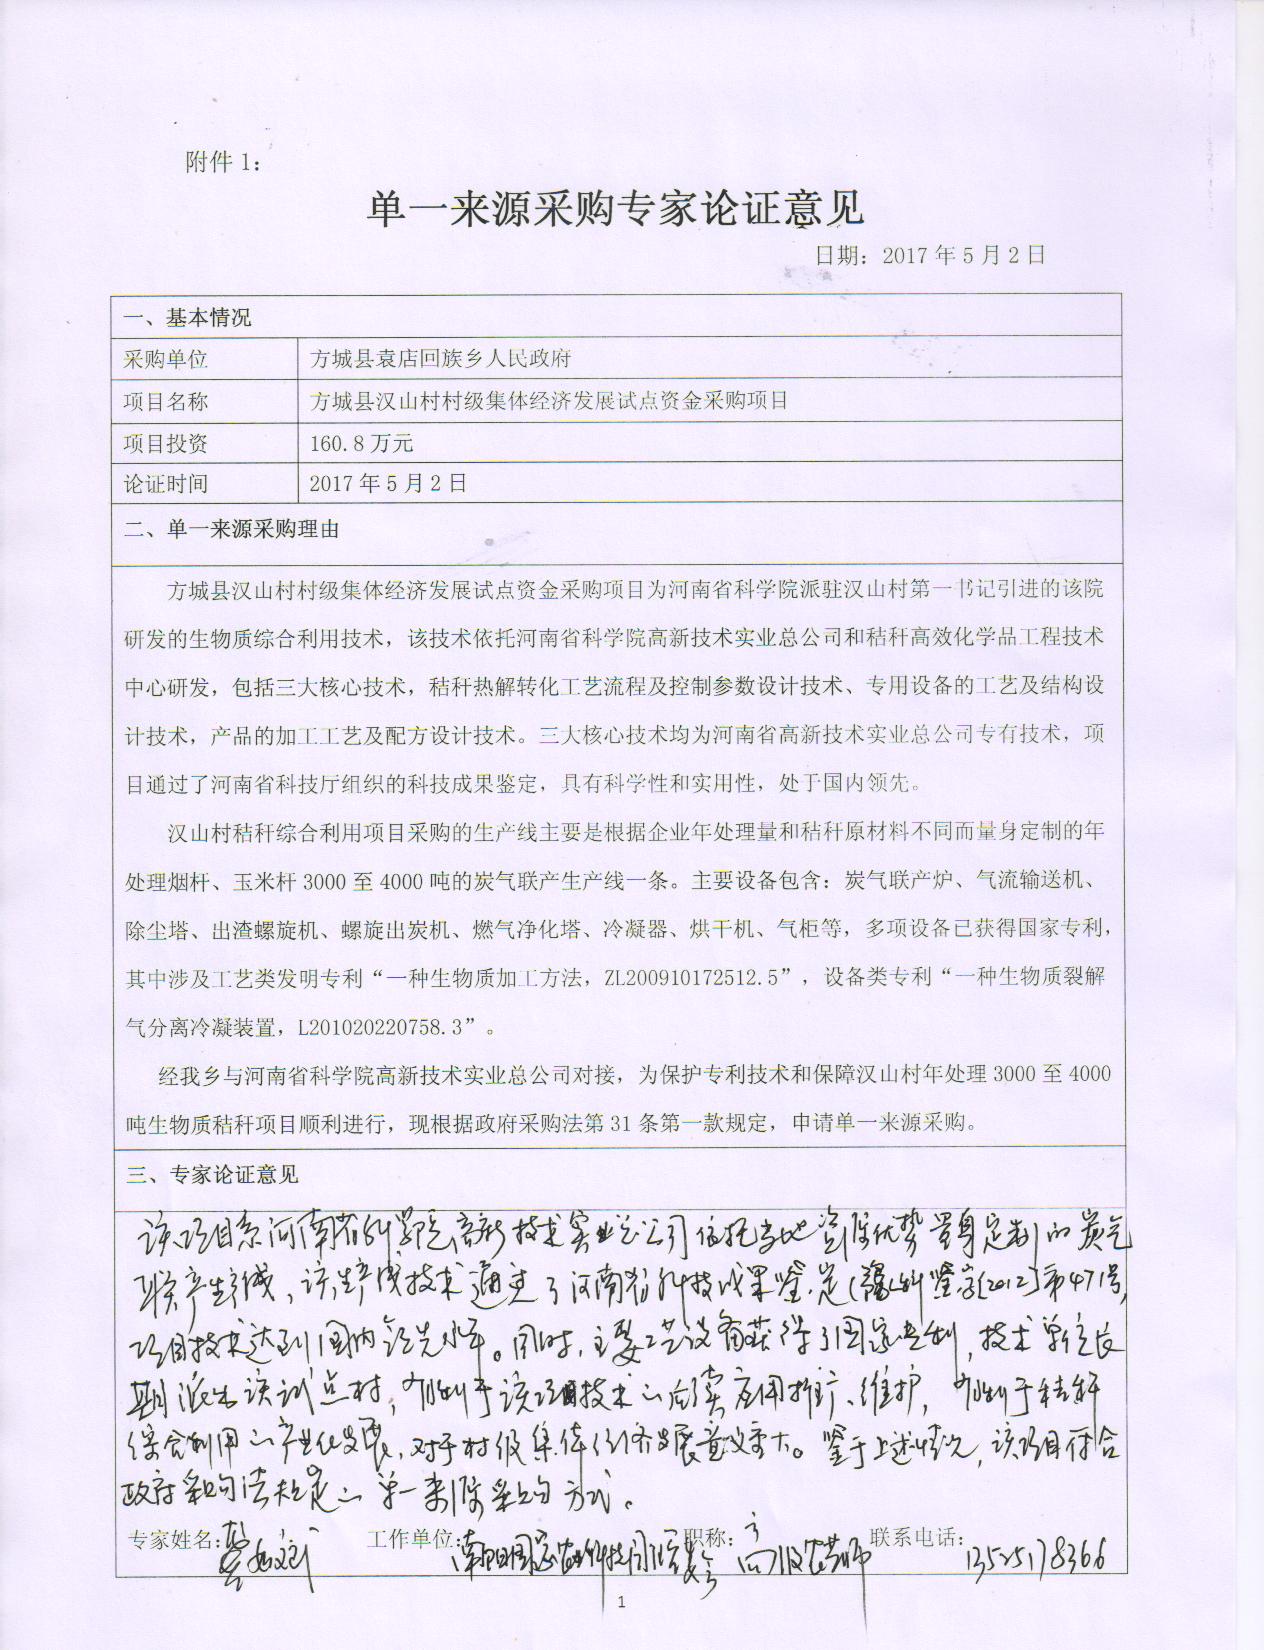 附件 1：
单一来源采购专家论证意见
日期：2017 年 5 月 2 日
一、基本情况
采购单位 方城县袁店回族乡人民政府
项目名称 方城县汉山村村级集体经济发展试点资金采购项目
项目投资 160.8 万元
论证时间 2017 年 5 月 2 日
二、单一来源采购理由
方城县汉山村村级集体经济发展试点资金采购项目为河南省科学院派驻汉山村第一书记引进的该院
研发的生物质综合利用技术，该技术依托河南省科学院高新技术实业总公司和秸秆高效化学品工程技术
中心研发，包括三大核心技术，秸秆热解转化工艺流程及控制参数设计技术、专用设备的工艺及结构设
计技术，产品的加工工艺及配方设计技术。三大核心技术均为河南省高新技术实业总公司专有技术，项
目通过了河南省科技厅组织的科技成果鉴定，具有科学性和实用性，处于国内领先。
汉山村秸秆综合利用项目采购的生产线主要是根据企业年处理量和秸秆原材料不同而量身定制的年
处理烟杆、玉米杆 3000 至 4000 吨的炭气联产生产线一条。主要设备包含：炭气联产炉、气流输送机、
除尘塔、出渣螺旋机、螺旋出炭机、燃气净化塔、冷凝器、烘干机、气柜等，多项设备已获得国家专利，
其中涉及工艺类发明专利“一种生物质加工方法，ZL200910172512.5”，设备类专利“一种生物质裂解
气分离冷凝装置，L201020220758.3”。
经我乡与河南省科学院高新技术实业总公司对接，为保护专利技术和保障汉山村年处理 3000 至 4000
吨生物质秸秆项目顺利进行，现根据政府采购法第 31 条第一款规定，申请单一来源采购。
三、专家论证意见
该项目系河南省科学院高新技术实业总公司依托当地资源优势量身定制的炭气
联产生产线，该生产线技术通过了河南省科技成果鉴定(豫科鉴字[2012]第471号，
项目技术达到国内领先水平。同时，主要工艺设备获得了国家专利，技术单位长
期派出该试点村，有利于该项目技术的后续应用推广、维护，有利于秸秆
综合利用的产业化发展，对于村级集体经济发展意义重大。鉴于上述情况，该项目符合
政府采购法规定的单一来源采购方式。
专家姓名： 工作单位：南阳国家农业科技园 职称：高级 联系电话：13525178366
1